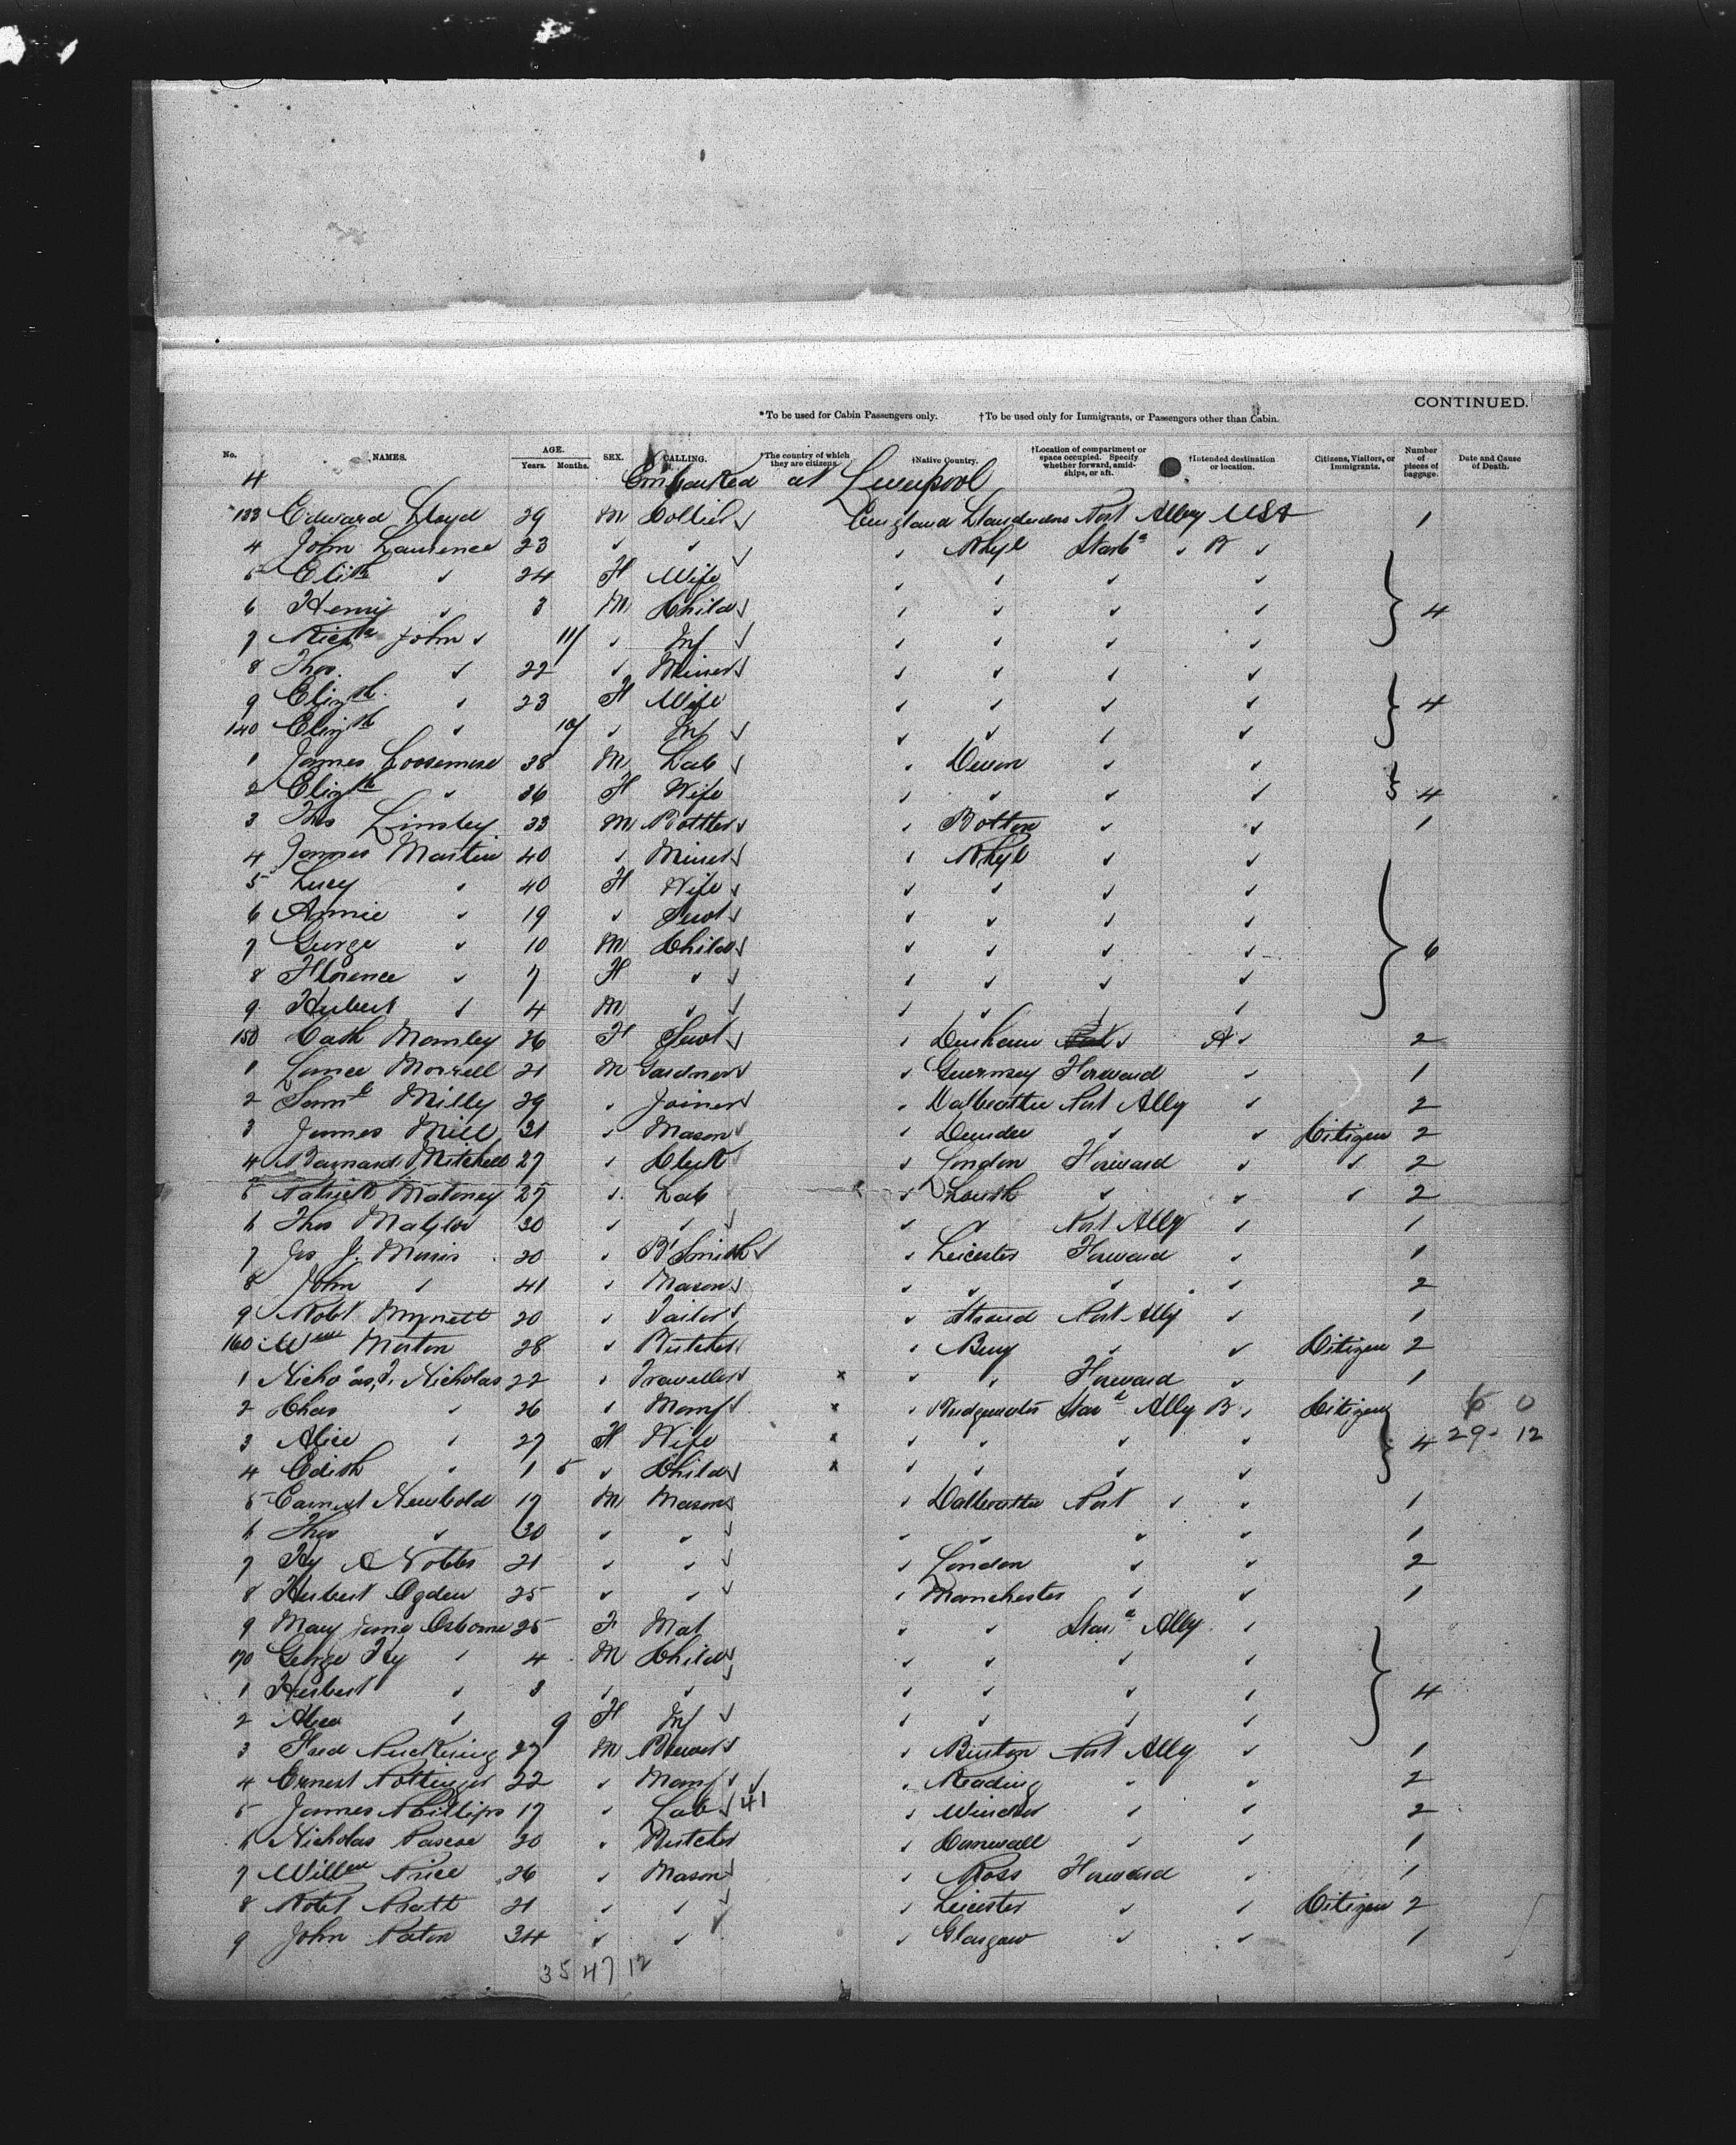 CONTINUED.
*To be used for Cabin Passengers only. †To be used only for Immigrants, or Passengers other than Cabin.
No. NAMES. AGE. Years. Months. SEX. CALLING. *The country of which they are citizens. †Native Country. †Location of compartment or space occupied. Specify whether forward, amidships, or aft. †Intended destination or location. Citizens, Visitors, or Immigrants. Number of pieces of baggage. Date and Cause of Death.
4 Embarked at Liverpool
133 Edward Lloyd 29 M Collier England Port Alley USA 1
4 John Laurence 23 " " " Rhyl Starb " B "
5 Elizth " 24 F Wife " " " "
6 Henry " 3 M Child " " " " 4
7 Richd John " 11/ " Inf " " " "
8 Thos. " 22 " Miner " " " "
9 Elizth " 23 F Wife " " " " 4
140 Elizth " 10/ " Inf " " " "
1 James Loosemore 38 M Lab " Devon " "
2 Elizth " 36 F Wife " " " " 4
3 Thos Linsley 33 M Bottler " Bolton " " 1
4 James Martin 40 " Miner " Rhyl " "
5 Lucy " 40 F Wife " " " "
6 Annie " 19 " Servt " " " "
7 George " 10 M Child " " " " 6
8 Florence " 7 F " " " " "
9 Hubert " 4 M " " " " "
150 Cath Mamley 26 F Servt " Durham " A " 2
1 Lance Morrell 21 M Gardner " Guernsey Forward " 1
2 Saml Milly 29 " Joiner " Dalbeattie Port Ally " 2
3 James Mill 31 " Mason " Dundee " " Citizen 2
4 Barnard Mitchell 27 " Clerk " London Forward " " 2
5 Patrick Maloney 27 " Lab " Louth " " " 2
6 Thos 30 " " " " Port Ally " 1
7 Jos J. Morris 20 " B'Smith " Leicester Forward " 1
8 John " 41 " Mason " " " " 2
9 Robt Mynett 20 " Tailor " Stroud Port Ally " 1
160 Wm Morton 28 " Butcher " Bury " " Citizen 2
1 Nicholas, J. Nicholas 22 " Traveller x " " Forward " 1
2 Chas " 26 " Manf x " Bridgewater Stard Ally B " Citizen 6 0
3 Alice " 27 F Wife x " " " " 4 29 - 12
4 Edith " 1 5 " Child x " " " "
5 Earnest Newbold 17 M Mason " Dalbeattie Port " " 1
6 Thos " 30 " " " " " " 1
7 Hy C Nobbs 21 " " " London " " 2
8 Hubert Ogden 25 " " " Manchester " " 1
9 Mary Jane Osborne 25 F Mat " " Stard Ally "
170 George Hy " 4 M Child " " " "
1 Herbert " 3 " " " " " " 4
2 Alice " 9 F Inf " " " "
3 Fred Puckering 27 M Brewer " Burton Port Ally " 1
4 Ernest Pottinger 22 " Manf " Reading " " 2
5 James Phillips 17 " Lab 41 " Windsor " " 2
6 Nicholas Pascoe 20 " Butcher " Cornwall " " 1
7 Willm Price 26 " Mason " Ross Forward " 1
8 Robt Pratt 21 " " " Leicester " " Citizen 2
9 John Paton 34 " " " Glasgow " " 1
35 47 12